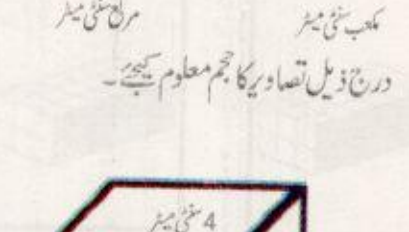 مکعب سنٹی میٹر مربع سنٹی میٹر
درج ذیل تصاویر کا حجم معلوم کیجیے۔
4 سنٹی میٹر